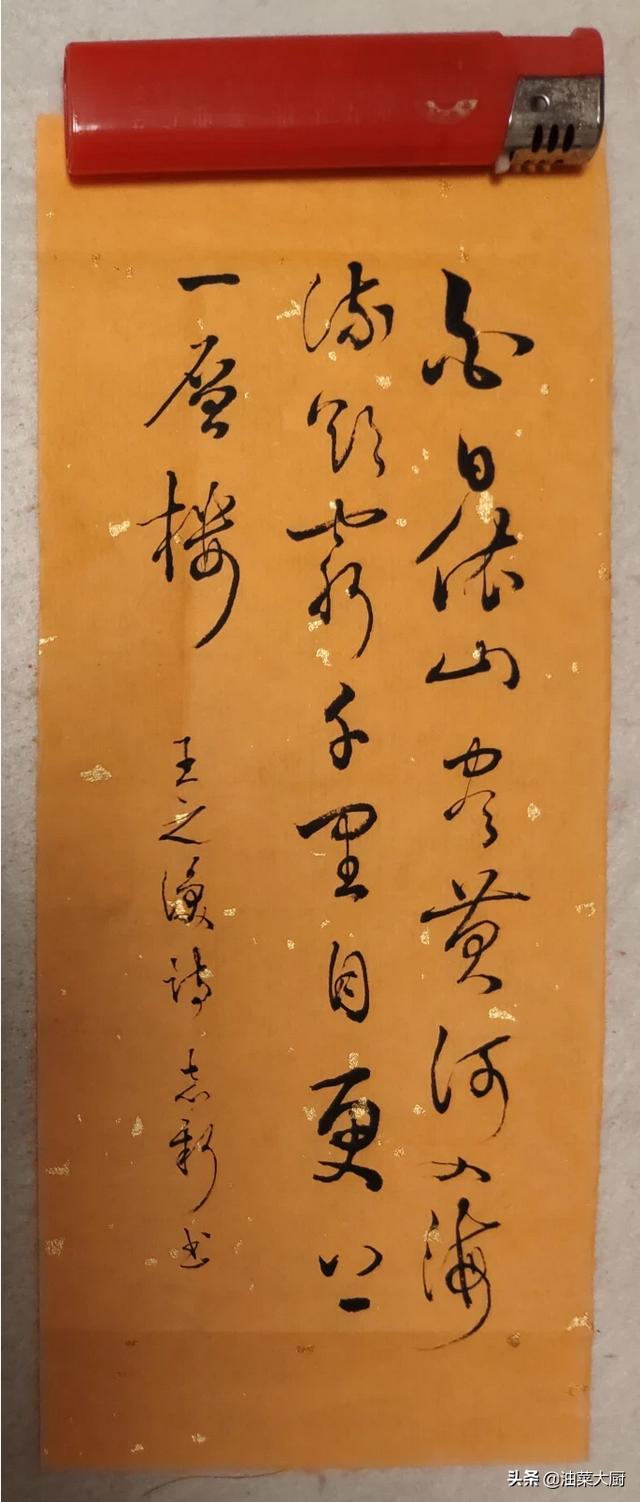 白日依山尽黄河入海
流欲窮千里目更上
一層樓
王之涣诗 志新书
头条 @油菜大厨